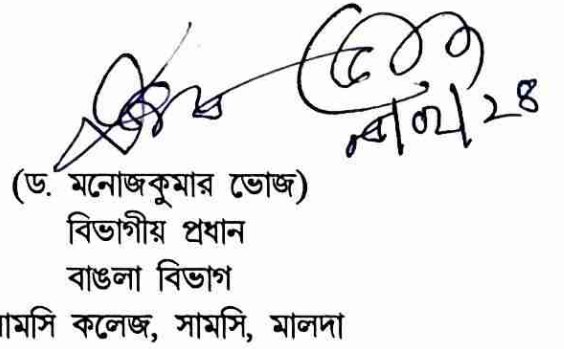 (ড. মনোজকুমার ভোজ)
বিভাগীয় প্রধান
বাঙলা বিভাগ
ামসি কলেজ, সামসি, মালদা